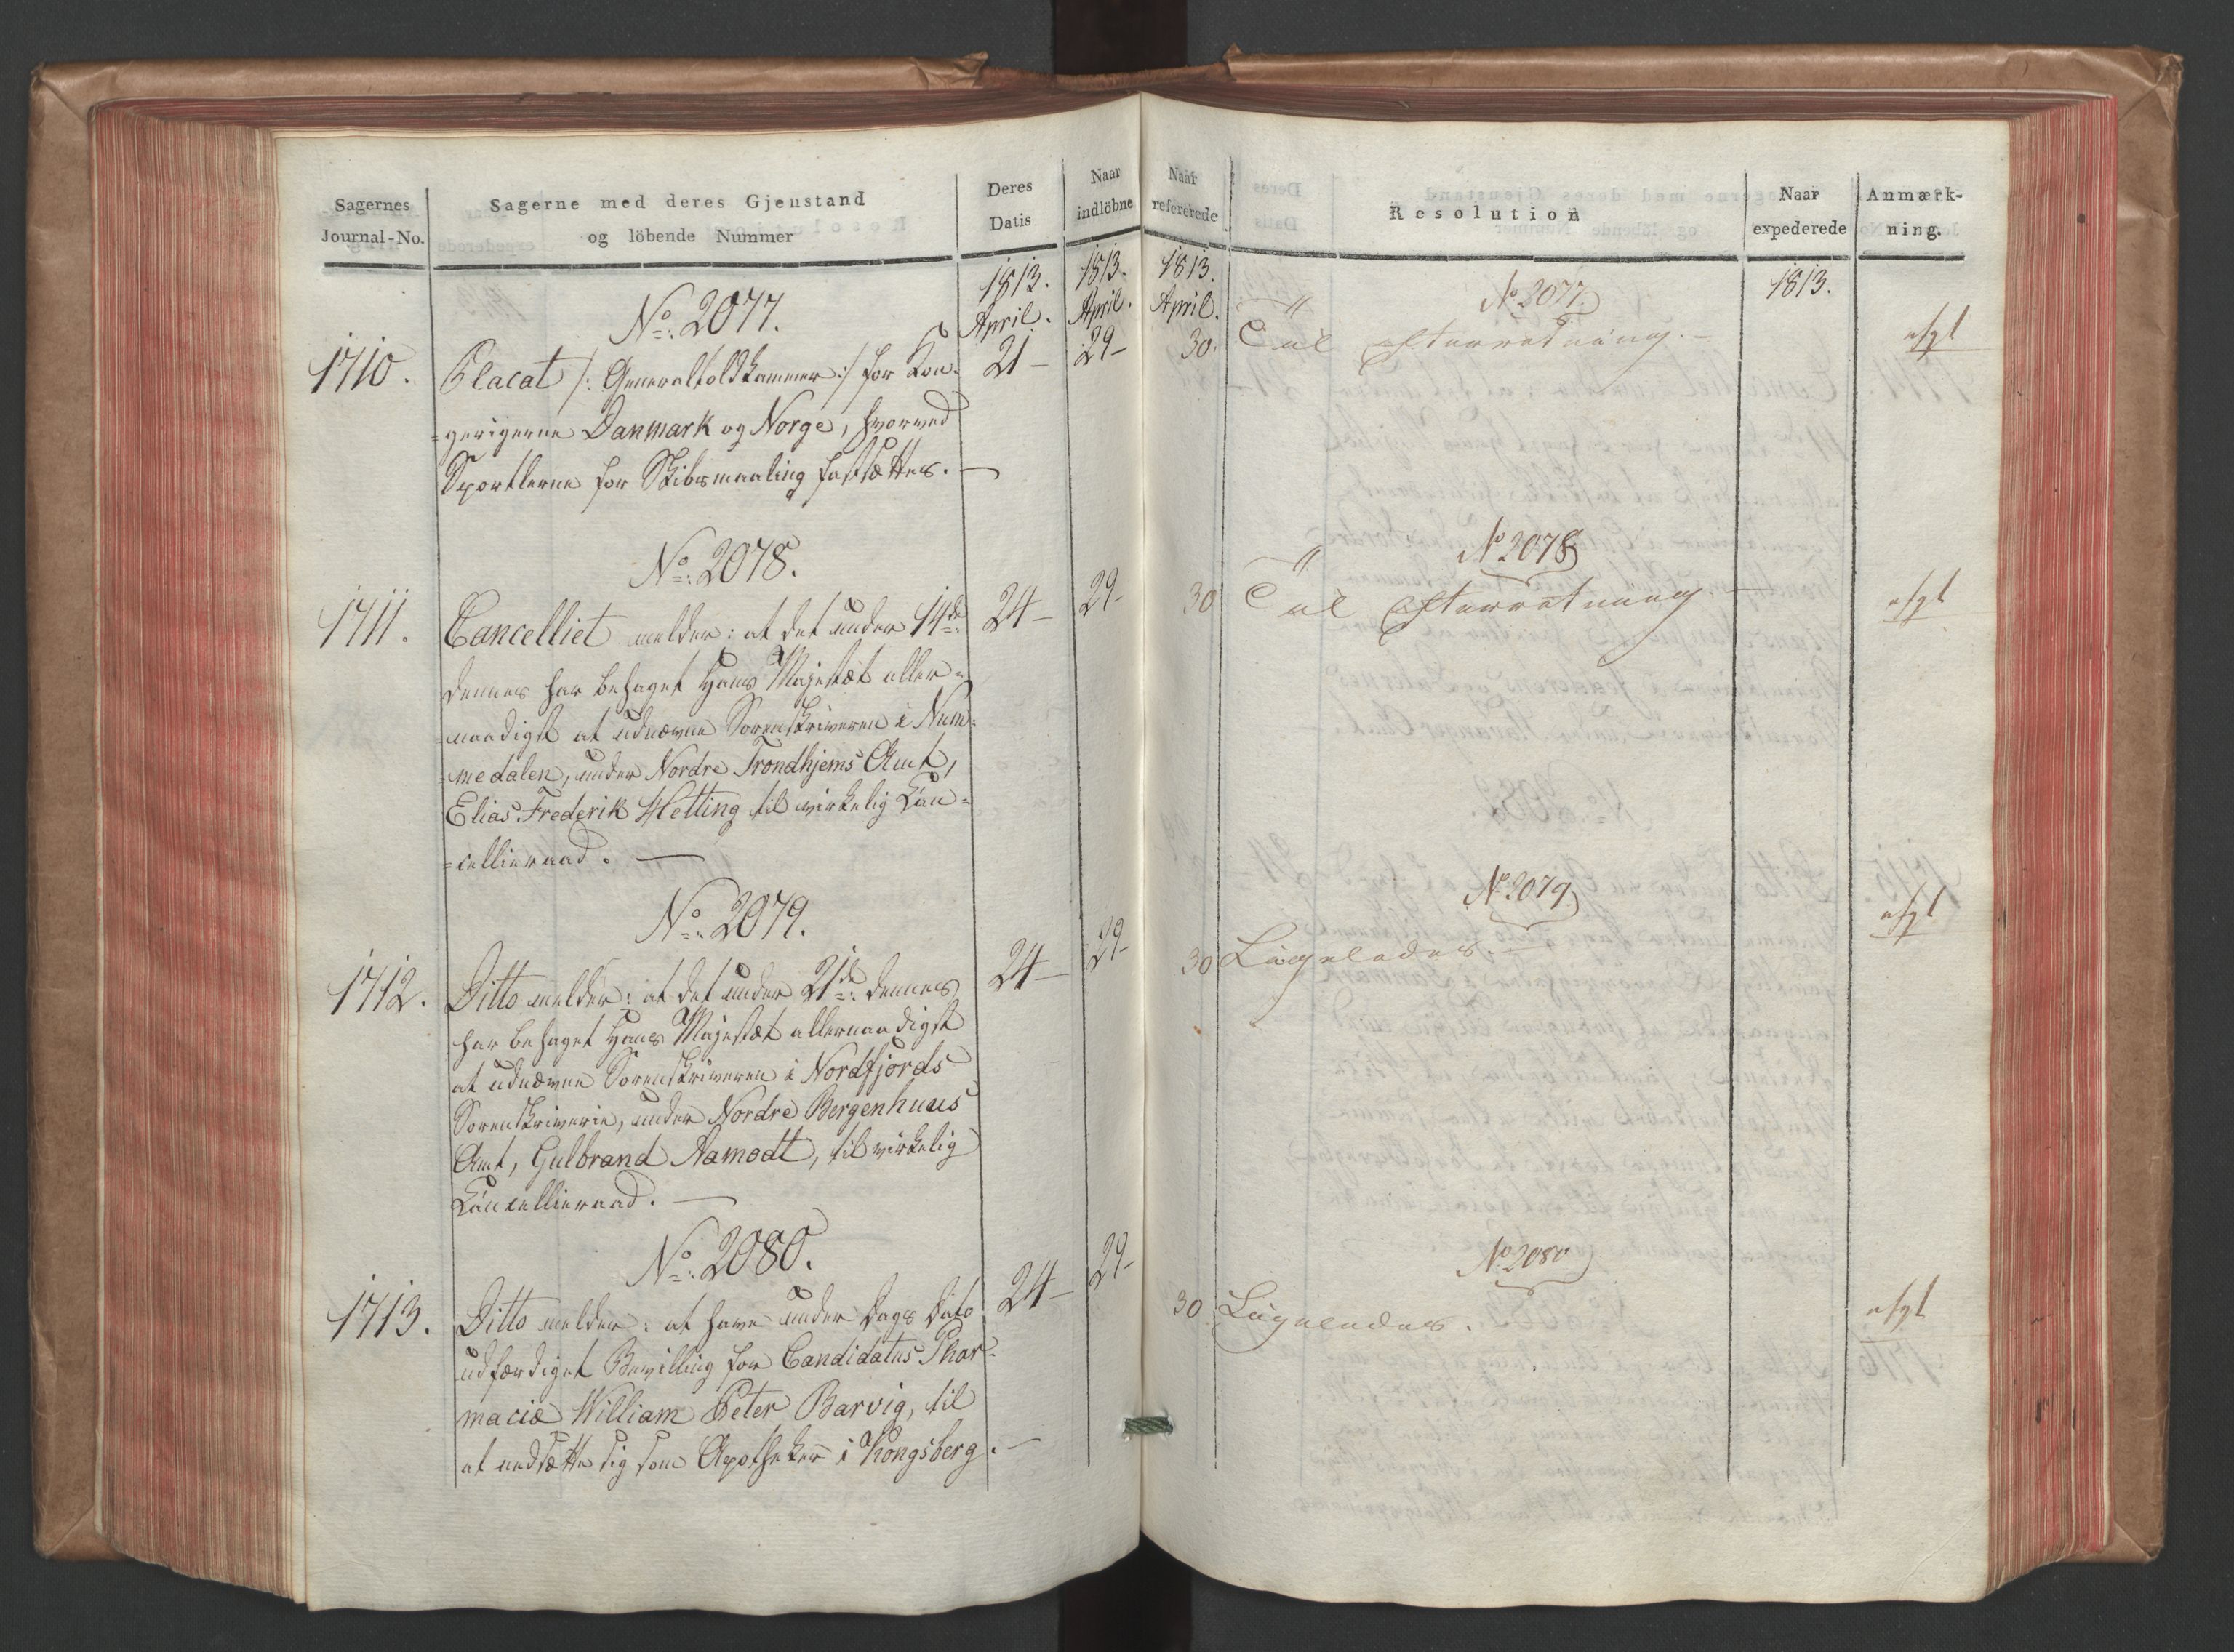 Sagernes
Journal-No.
Sagerne med deres Gjenstand
og löbende Nummer
Deres
Datis
Naar
indlöbne
1813. 1813.
April. April.
No: 2077.
1710. Placat /: Generaltoldkammer :/ for Kon- 21 - 29 -
=gerigerne Danmark og Norge, hvorved
Sportlerne for Skibsmaaling fastsættes. -
No: 2078.
1711. Cancelliet melder: at det under 14de 24 - 29 -
dennes har behaget Hans Majestæt aller=
=naadigst at udnævne Sorenskriveren i Num=
=medalen, under Nordre Trondhjems Amt,
Elias Frederik Hetting til virkelig Can=
=cellieraad. -
No: 2079.
1712. Ditto melder: at det under 21de dennes 24 - 29 -
har behaget Hans Majestæt allernaadigst
at udnævne Sorenskriveren i Nordfjords
Sorenskriverie, under Nordre Bergenhuus
Amt, Gulbrand Aamodt, til virkelig
Cancellieraad. -
No: 2080.
1713. Ditto melder: at have under Dags Dato 24 - 29 -
udfærdiget Bevilling for Candidatus Phar-
maciæ William Peter Barvig, til
at nedsætte sig som Apotheker i Kongsberg. -
Naar
refererede
Resolution
Naar
expederede
Anmærk-
ning.
1813. 1813.
April.
No 2077
30. Til Efterretning. -
No 2078
30 Til Efterretning
No 2079
30 Ligeledes. -
No 2080
30. Ligeledes.